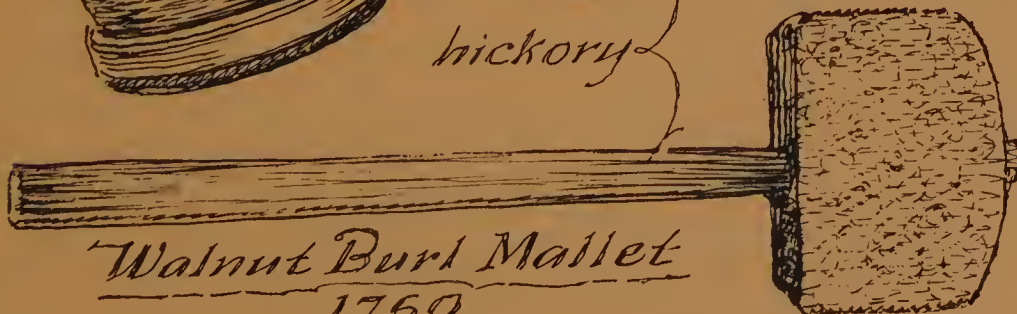 hickory
Walnut Burl Mallet